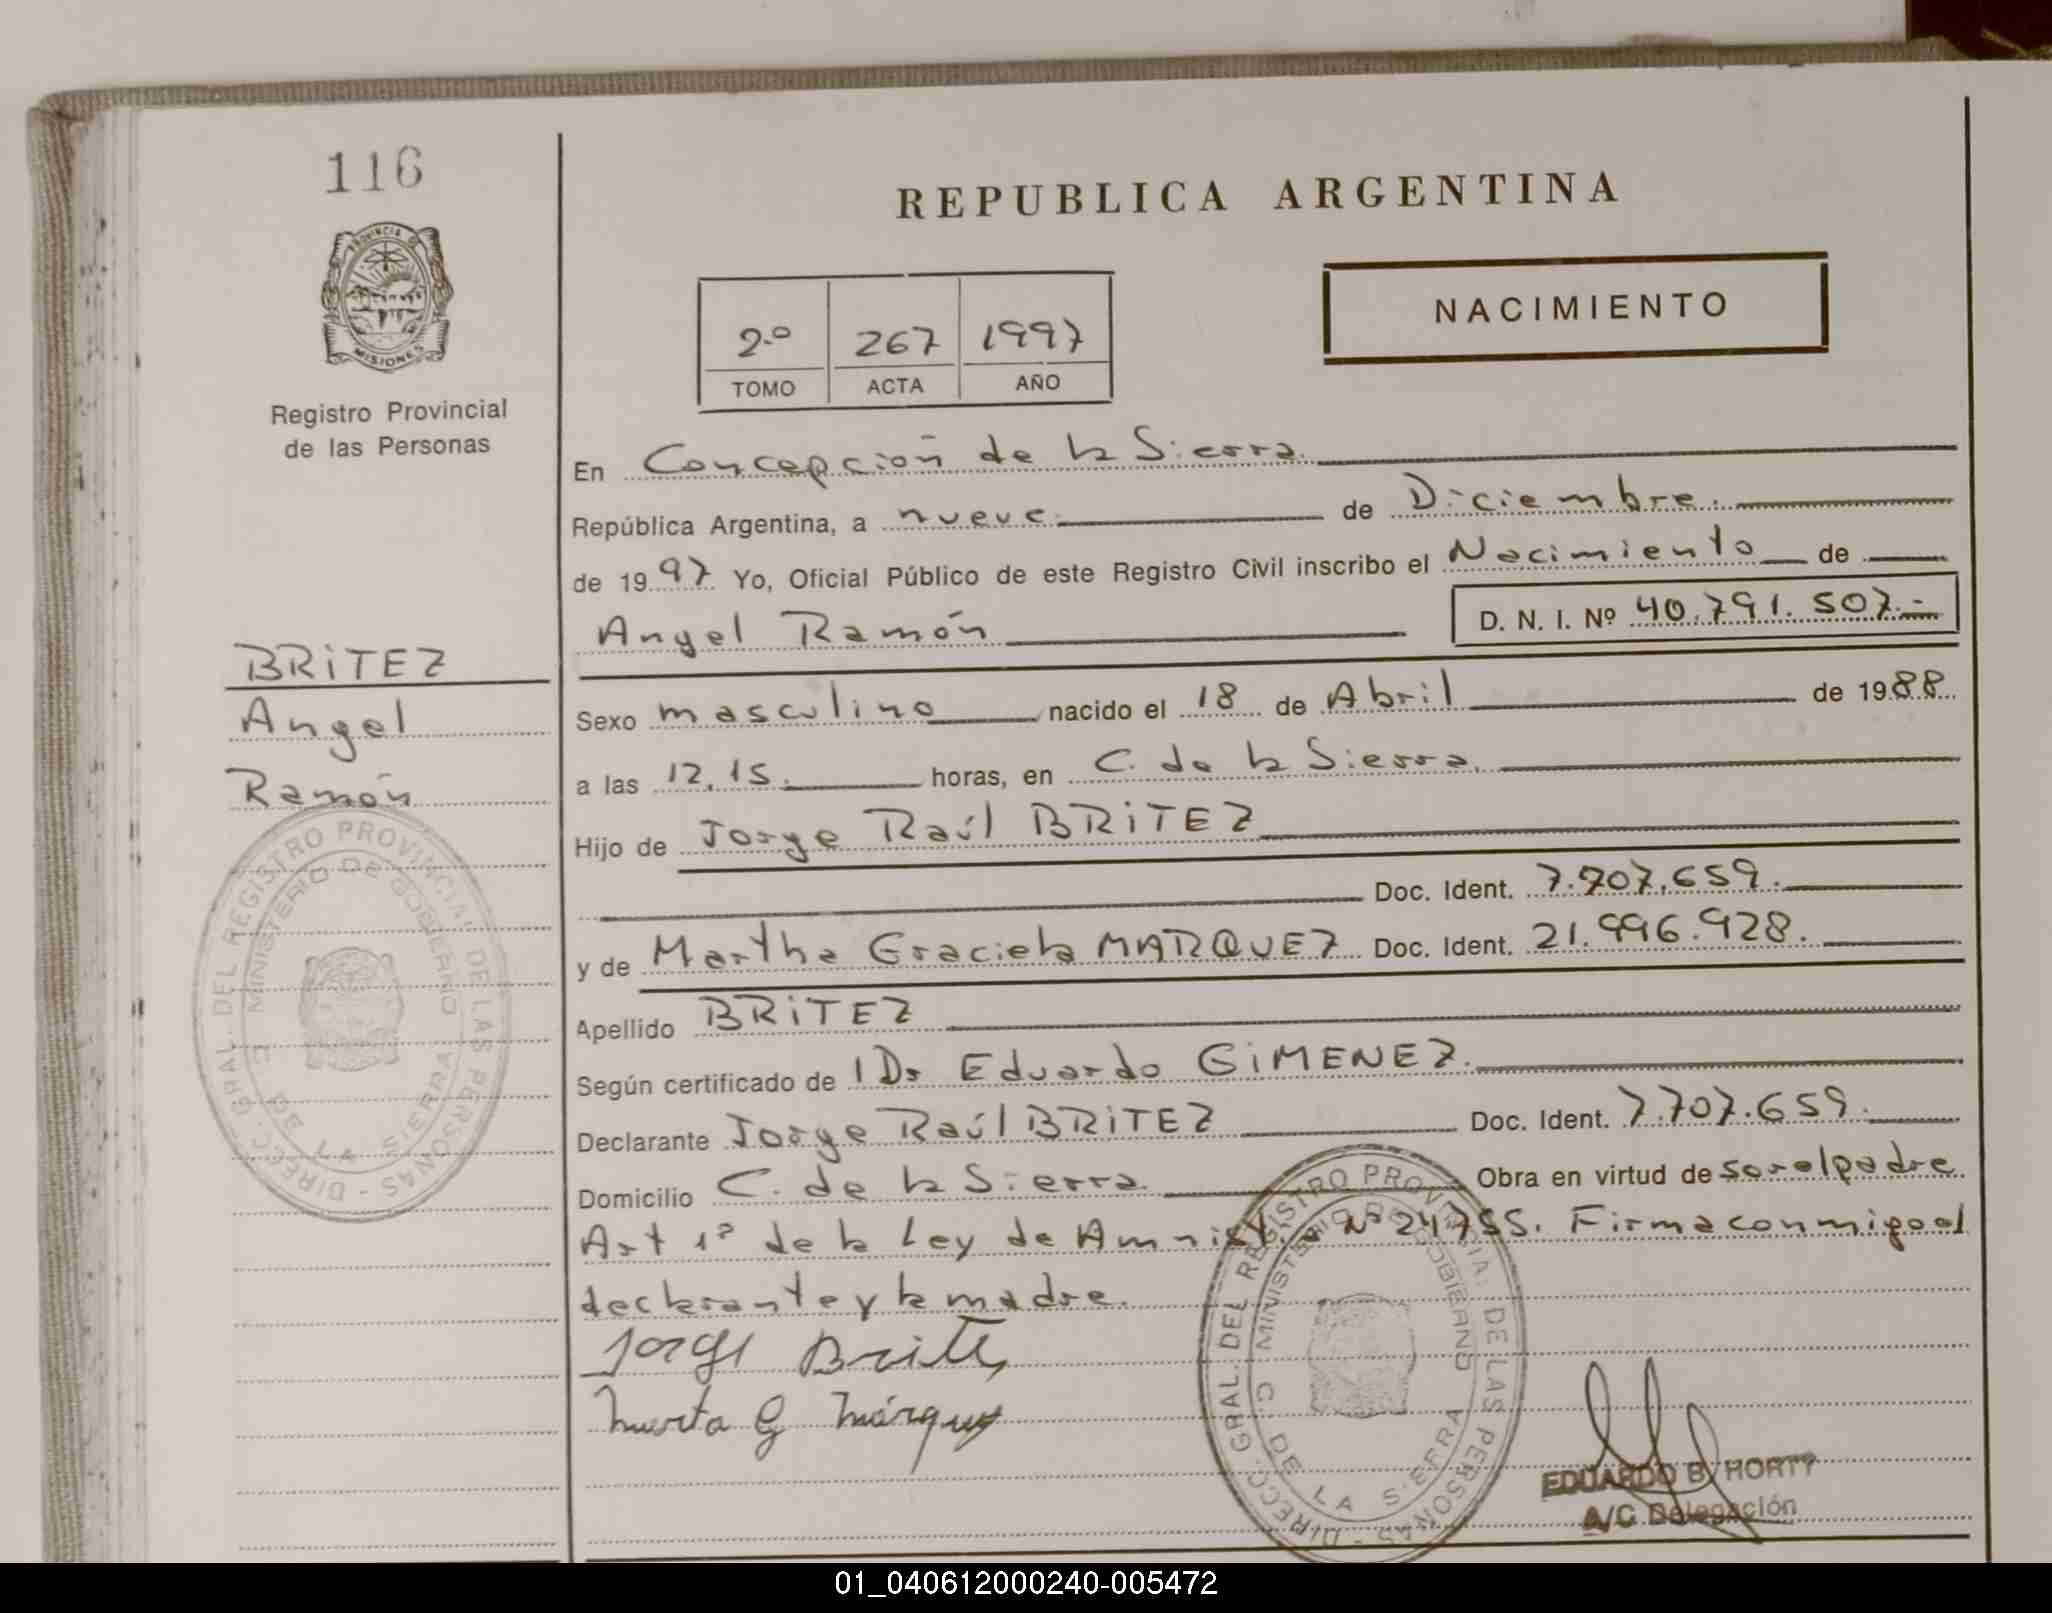 116
PROVINCIA DE
MISIONES
Registro Provincial
de las Personas
REPUBLICA ARGENTINA
NACIMIENTO
2º 267 1997
TOMO ACTA AÑO
En Concepción de la Sierra.
República Argentina, a nueve de Diciembre.
de 1997 Yo, Oficial Público de este Registro Civil inscribo el Nacimiento de
Angel Ramón D. N. I. Nº 40.791.507.-
BRITEZ
Angel
Ramón
Sexo masculino nacido el 18 de Abril de 1988
a las 12,15. horas, en C. de la Sierra.
Hijo de Jorge Raúl BRITEZ
Doc. Ident. 7.707.659.
y de Martha Graciela MARQUEZ Doc. Ident. 21.996.928.
Apellido BRITEZ
Según certificado de 1 Dr Eduardo GIMENEZ.
Declarante Jorge Raúl BRITEZ Doc. Ident. 7.707.659.
Domicilio C. de la Sierra. Obra en virtud de ser el padre
Art 1º de la Ley de Amnistia Nº 24755. Firma conmigo el
declarante y la madre.
Jorge Britez
Marta G Márquez
DIREC. GRAL. DEL REGISTRO PROVINCIAL DE LAS PERSONAS
MINISTERIO DE GOBIERNO
C. DE LA SIERRA
DIREC. GRAL. DEL REGISTRO PROVINCIAL DE LAS PERSONAS
MINISTERIO DE GOBIERNO
C. DE LA SIERRA
EDUARDO B. HORTT
A/C Delegación
01_040612000240-005472